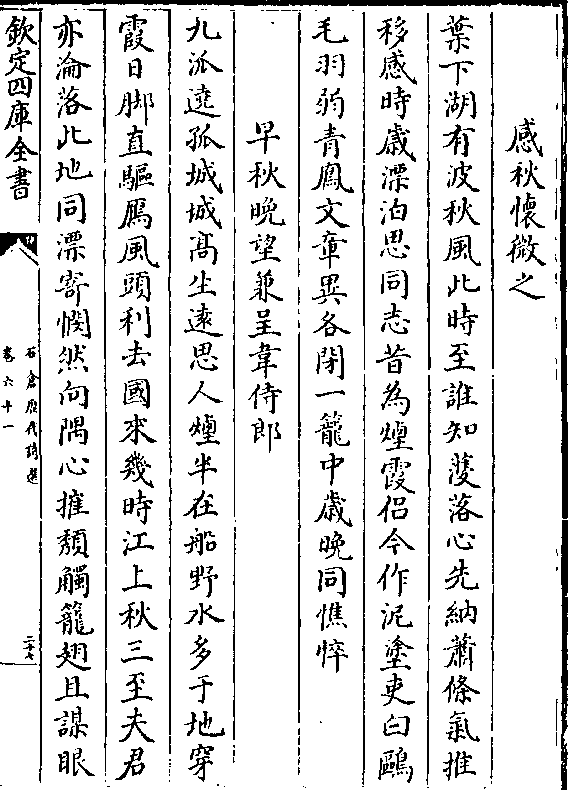 感秋懷微之
葉下湖有波秋風此時至誰知濩落心先納蕭條氣推
移感時歲漂泊思同志昔為煙霞侶今作泥塗吏白鷗
毛羽弱青鳳文章異各閉一籠中歲晚同憔悴
早秋晚望兼呈韋侍郎
九派遶孤城城高生遠思人煙半在船野水多于地穿
霞日脚直驅鴈風頭利去國來幾時江上秋三至夫君
亦淪落此地同漂寄憫然向隅心摧頹觸籠翅且謀眼
欽定四庫全書
石倉歷代詩選
卷六十一
二十七